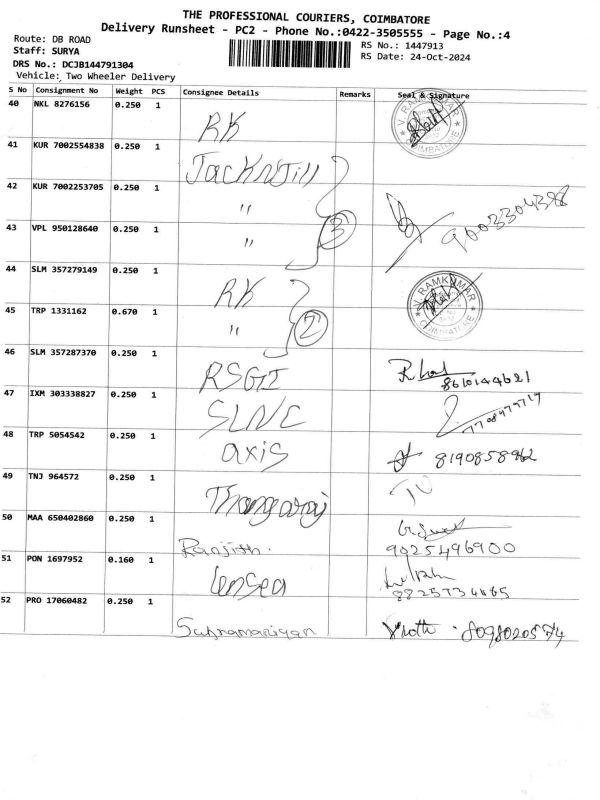 THE PROFESSIONAL COURIERS, COIMBATORE
Delivery Runsheet - PC2 - Phone No.:0422-3505555 - Page No.:4
Route: DB ROAD
Staff: SURYA
RS No.: 1447913
RS Date: 24-Oct-2024
DRS No.: DCJB144791304
Vehicle: Two Wheeler Delivery
S No Consignment No Weight PCS Consignee Details Remarks Seal & Signature
40 NKL 8276156 0.250 1
RK
V. RAMKUMAR COIMBATORE
41 KUR 7002554838 0.250 1
JackNJill
42 KUR 7002253705 0.250 1
"
3
9003304398
43 VPL 950128640 0.250 1
"
44 SLM 357279149 0.250 1
RK
V. RAMKUMAR COIMBATORE
45 TRP 1331162 0.670 1
"
2
46 SLM 357287370 0.250 1
RSGII
8610144621
47 IXM 303338827 0.250 1
SLNC
48 TRP 5054542 0.250 1
axis
8190858962
49 TNJ 964572 0.250 1
Thangaraj
50 MAA 650402860 0.250 1
Ranjith.
9025496900
51 PON 1697952 0.160 1
52 PRO 17060482 0.250 1
Subramaniyan